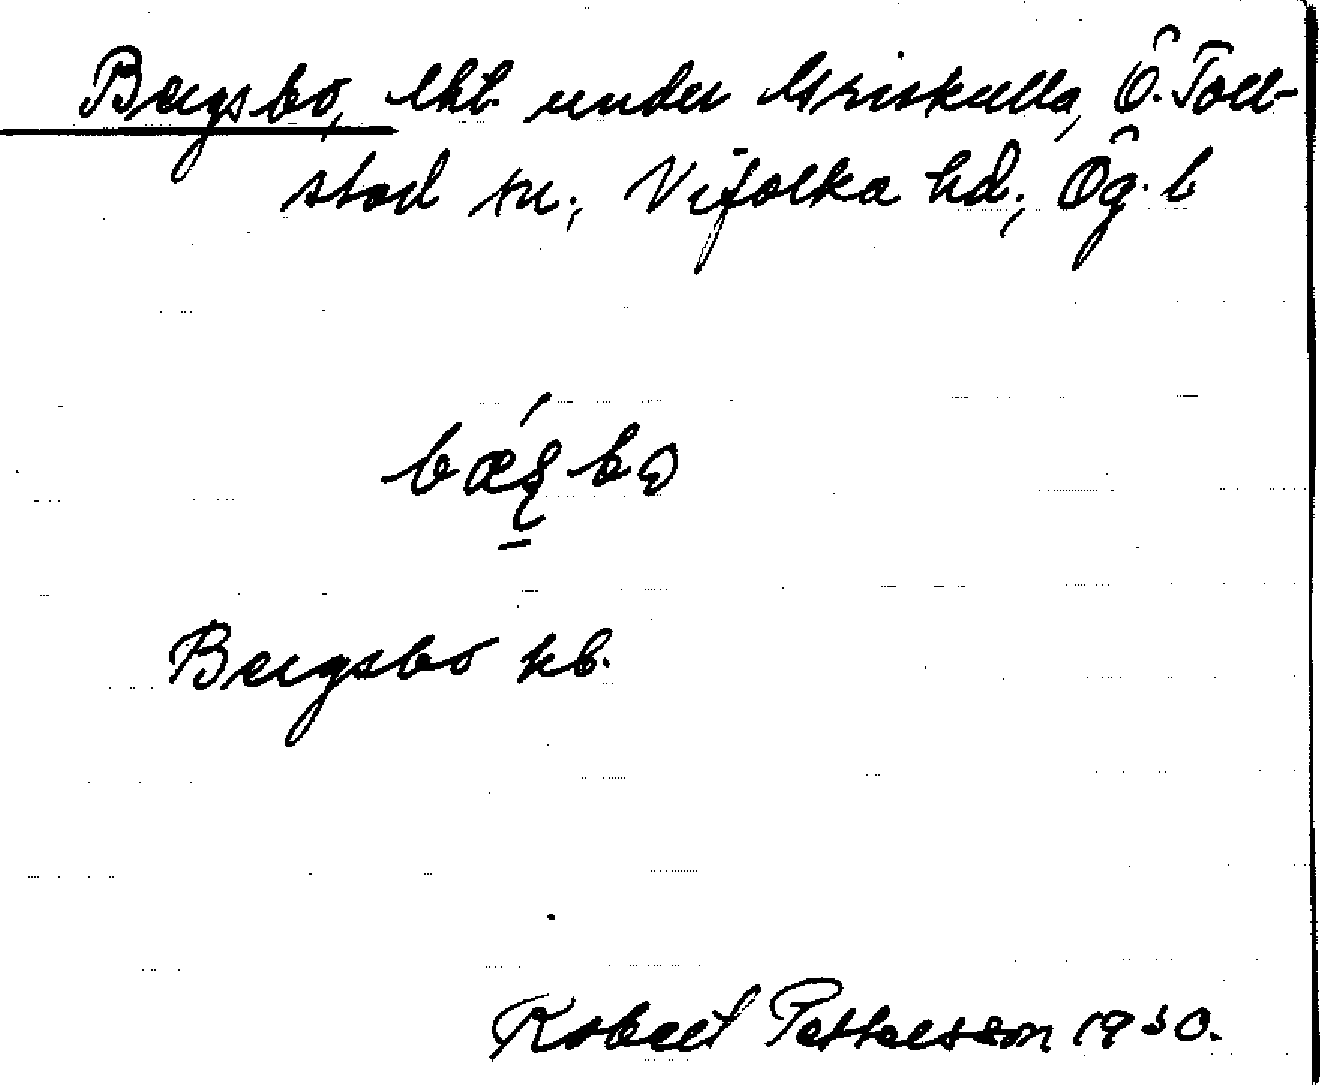 Bergsbo, lht. under Griskulla, Ö. Toll-
stad sn., Vifolka hd., Ög. l
Bergsbo kb.
Robert Pettersson 1930.